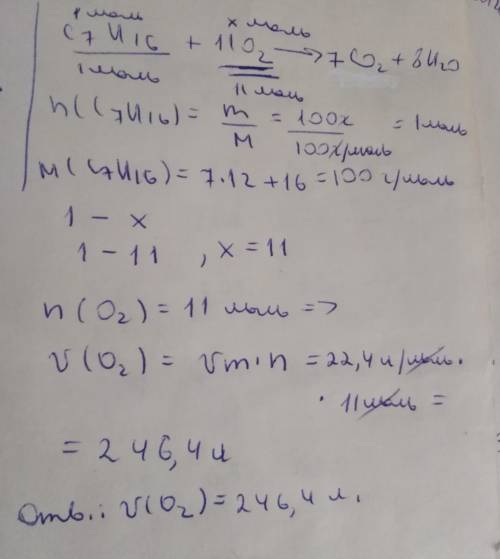 1 моль x моль
C7H16 + 11O2 → 7CO2 + 8H2O
1 моль 11 моль
n(C7H16) = m/M = 100г/100г/моль = 1 моль
M(C7H16) = 7·12 + 16 = 100 г/моль
1 – x
1 – 11 , x = 11
n(O2) = 11 моль =>
V(O2) = Vm·n = 22,4 л/моль·
· 11 моль =
= 246,4 л
Отв.: V(O2) = 246,4 л.